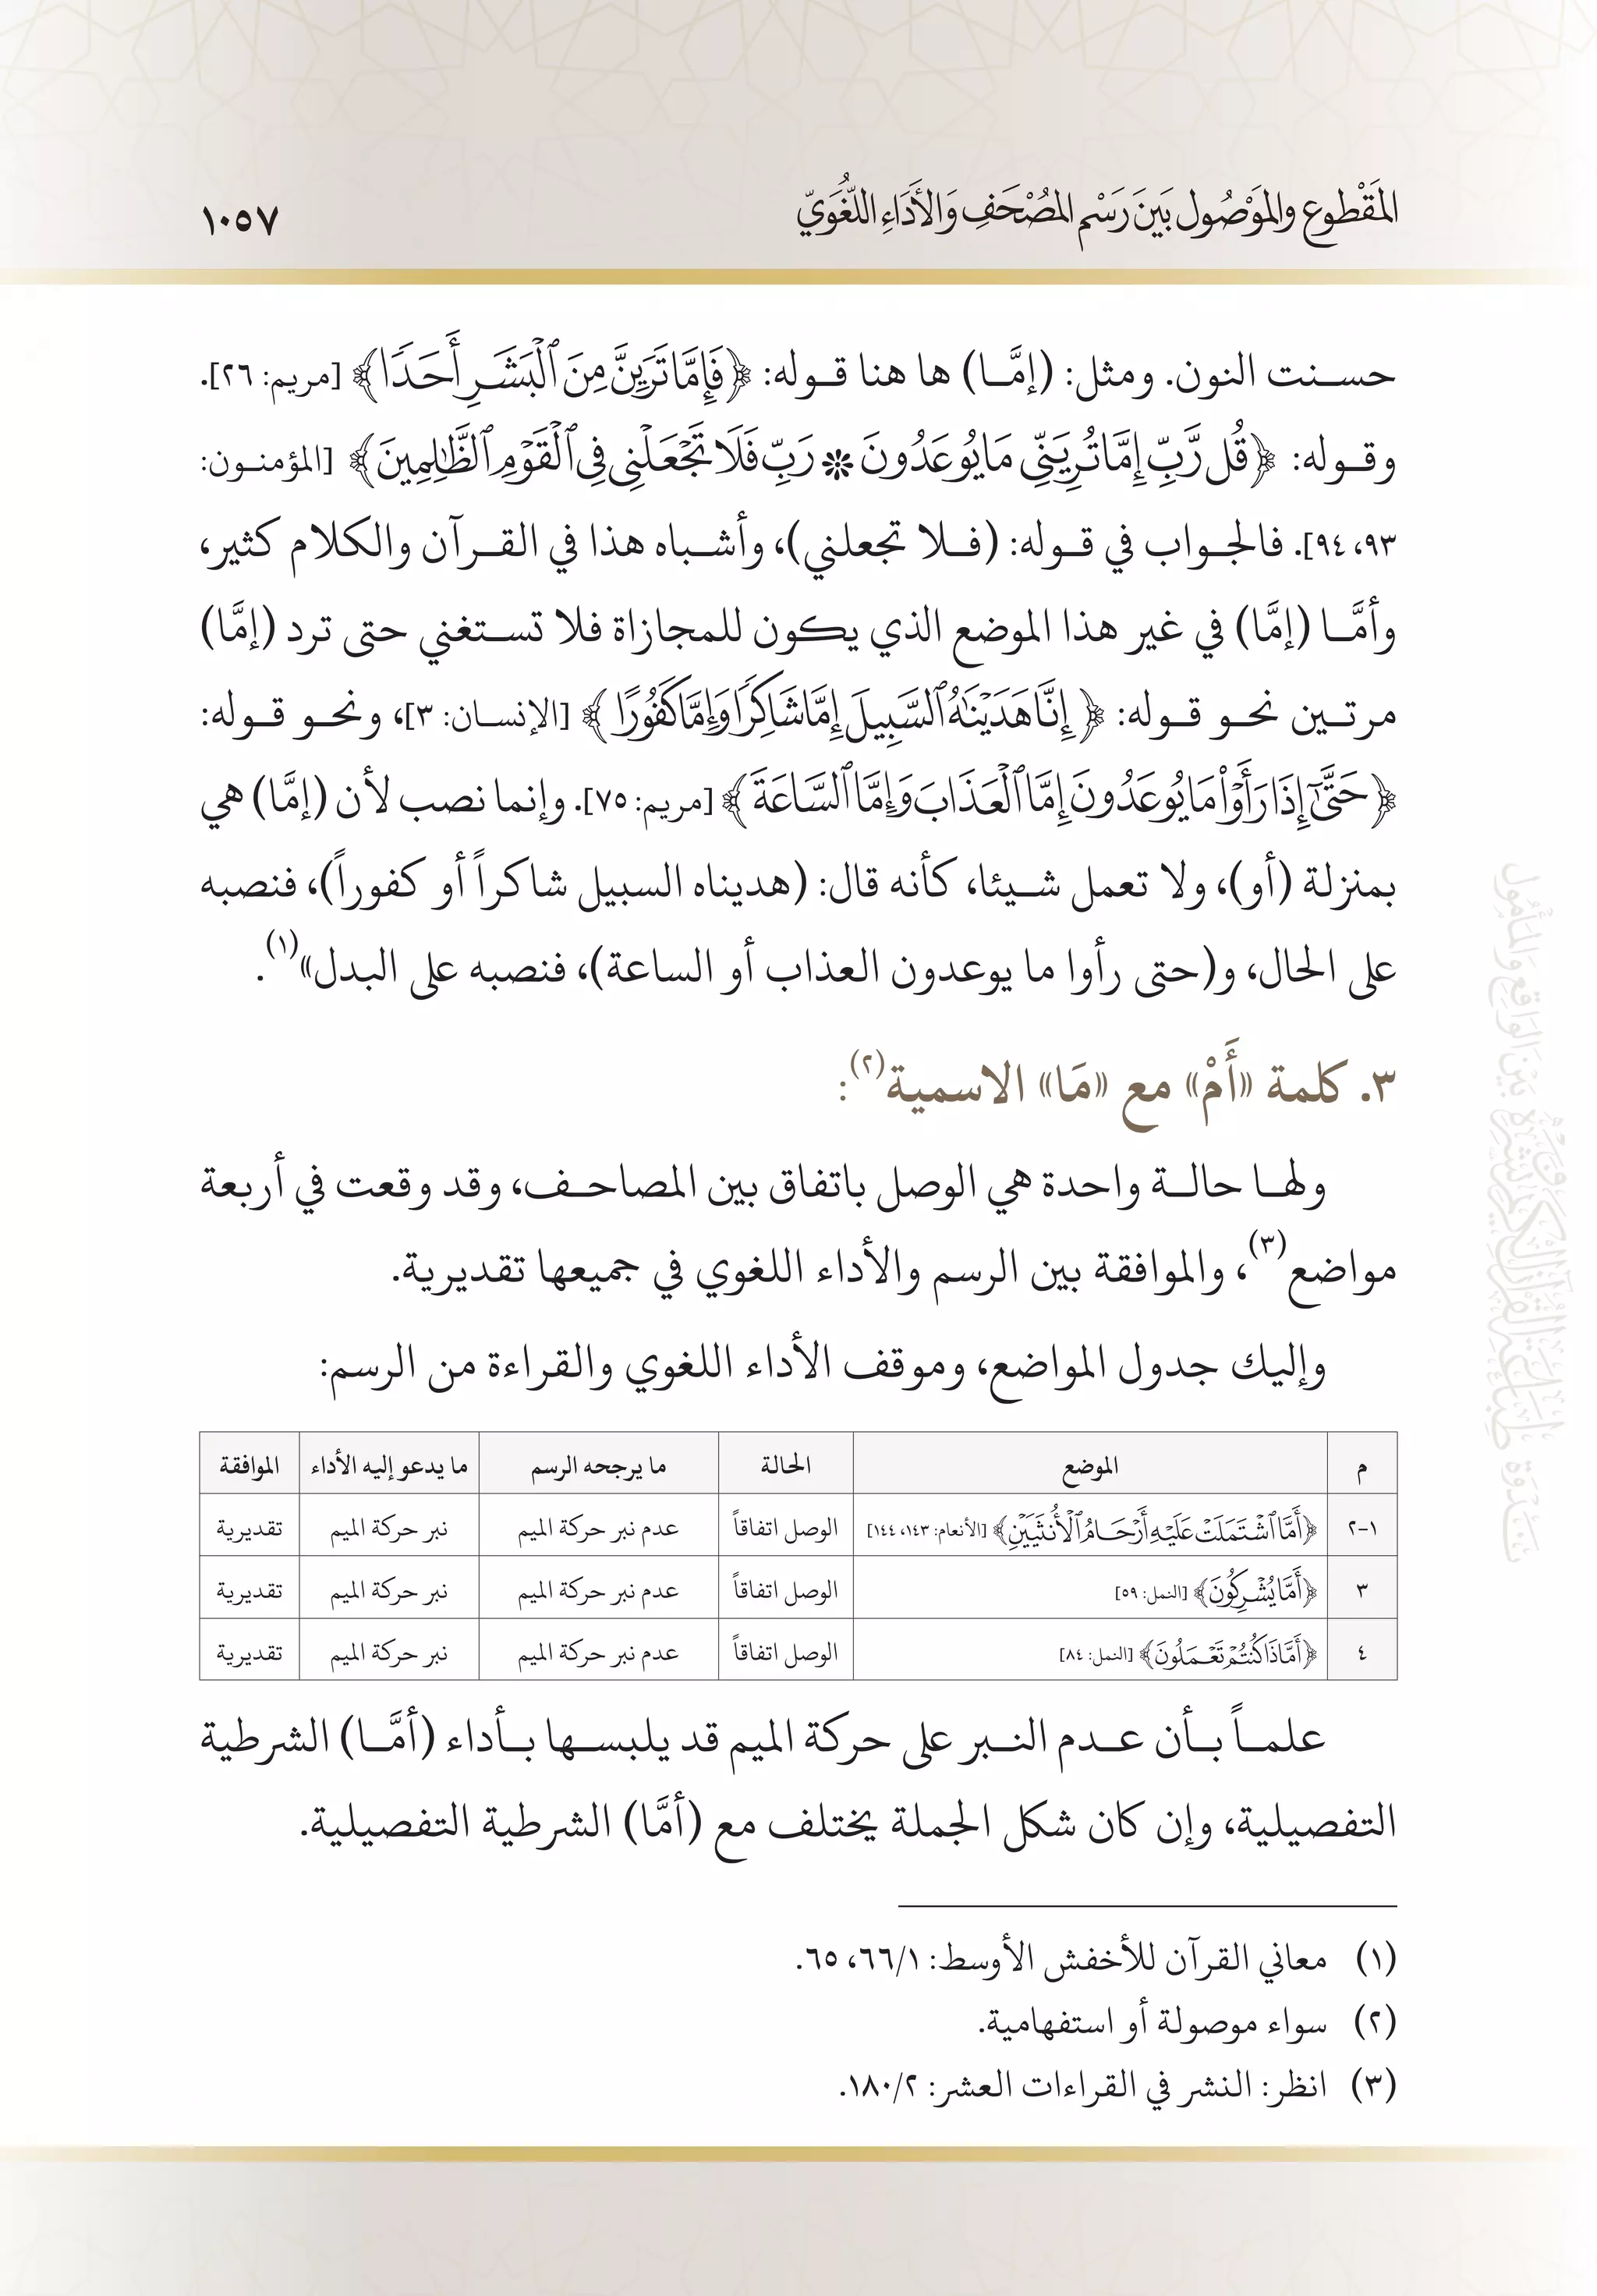 المَقْطُوع والمَوْصُول بَيْنَ رَسْمِ المُصْحَفِ وَالأَدَاءِ اللُّغَوِيّ ١٠٥٧
حسـنت النون. ومثل: (إمَّـا) ها هنا قـوله: ﴿فَإِمَّا تَرَيِنَّ مِنَ ٱلۡبَشَرِ أَحَدٗا﴾ [مريم: ٢٦].
وقـوله: ﴿قُل رَّبِّ إِمَّا تُرِيَنِّي مَا يُوعَدُونَ * رَبِّ فَلَا تَجۡعَلۡنِي فِي ٱلۡقَوۡمِ ٱلظَّٰلِمِينَ﴾ [المؤمنـون:
٩٣، ٩٤]. فالجـواب في قـوله: (فـلا تجعلني)، وأشـباه هذا في القـرآن والكلام كثير،
وأمَّـا (إمَّا) في غير هذا الموضع الذي يكون للمجازاة فلا تسـتغني حتى ترد (إمَّا)
مرتـين نحـو قـوله: ﴿إِنَّا هَدَيۡنَٰهُ ٱلسَّبِيلَ إِمَّا شَاكِرٗا وَإِمَّا كَفُورًا﴾ [الإنسـان: ٣]، ونحـو قـوله:
﴿حَتَّىٰٓ إِذَا رَأَوۡاْ مَا يُوعَدُونَ إِمَّا ٱلۡعَذَابَ وَإِمَّا ٱلسَّاعَةَ﴾ [مريم: ٧٥]. وإنما نصب لأن (إمَّا) هي
بمنزلة (أو)، ولا تعمل شـيئا، كأنه قال: (هديناه السبيل شاكراً أو كفوراً)، فنصبه
على الحال، و(حتى رأوا ما يوعدون العذاب أو الساعة)، فنصبه على البدل»(١).
٣. كلمة «أَمْ» مع «مَا» الاسمية(٢):
ولهـا حالـة واحدة هي الوصل باتفاق بين المصاحـف، وقد وقعت في أربعة
مواضع(٣)، والموافقة بين الرسم والأداء اللغوي في جميعها تقديرية.
وإليك جدول المواضع، وموقف الأداء اللغوي والقراءة من الرسم:
م الموضع الحالة ما يرجحه الرسم ما يدعو إليه الأداء الموافقة
١-٢ ﴿أَمَّا ٱشۡتَمَلَتۡ عَلَيۡهِ أَرۡحَامُ ٱلۡأُنثَيَيۡنِ﴾ [الأنعام: ١٤٣، ١٤٤] الوصل اتفاقاً عدم نبر حركة الميم نبر حركة الميم تقديرية
٣ ﴿أَمَّا يُشۡرِكُونَ﴾ [النمل: ٥٩] الوصل اتفاقاً عدم نبر حركة الميم نبر حركة الميم تقديرية
٤ ﴿أَمَّاذَا كُنتُمۡ تَعۡمَلُونَ﴾ [النمل: ٨٤] الوصل اتفاقاً عدم نبر حركة الميم نبر حركة الميم تقديرية
علمـاً بـأن عـدم النـبر على حركة الميم قد يلبسـها بـأداء (أمَّـا) الشرطية
التفصيلية، وإن كان شكل الجملة يختلف مع (أمَّا) الشرطية التفصيلية.
(١) معاني القرآن للأخفش الأوسط: ١/٦٦، ٦٥.
(٢) سواء موصولة أو استفهامية.
(٣) انظر: النشر في القراءات العشر: ٢/١٨٠.
نَدْوَة طِبَاعَة القُرآنِ الكَرِيمِ وَنَشْرِهِ بَيْنَ الوَاقِعِ وَالمَأْمُولِ